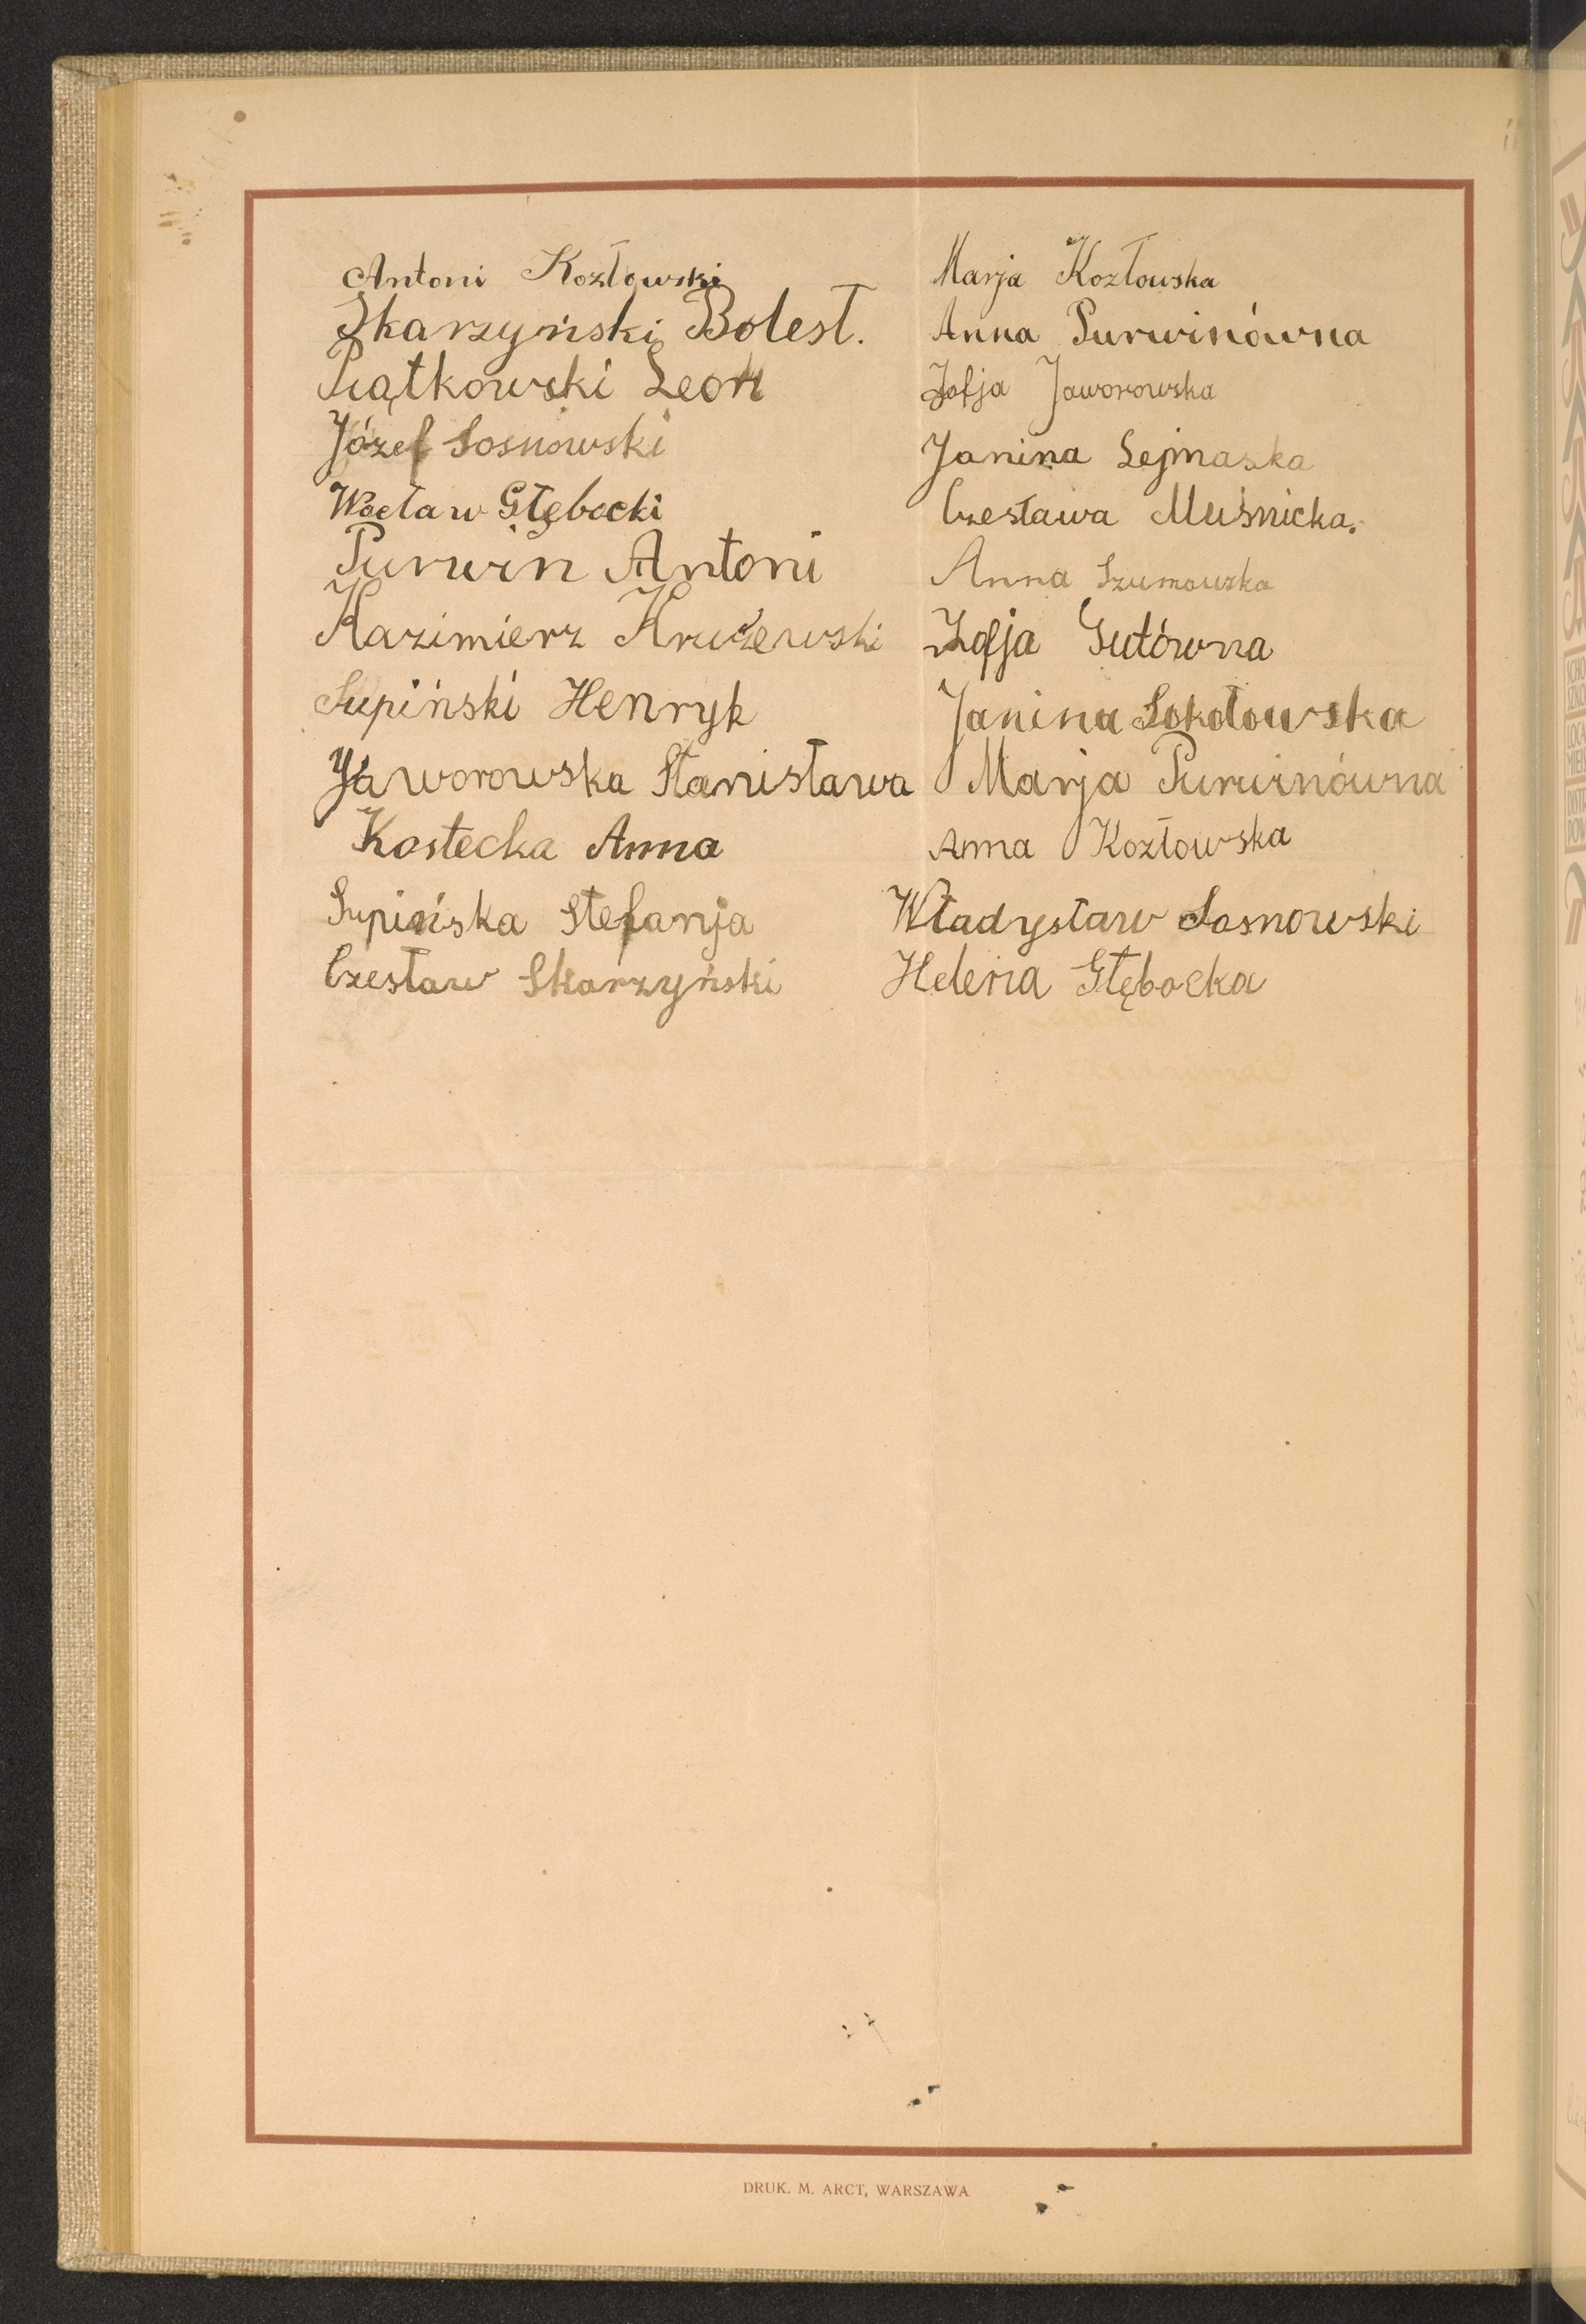 Antoni Kozłowski
Skarzyński Bolesł.
Piątkowski Leon
Józef Sosnowski
Wacław Głębocki
Purwin Antoni
Kazimierz Kruszewski
Supiński Henryk
Jaworowska Stanisława
Kostecka Anna
Supińska Stefanja
Czesław Skarzyński
Marja Kozłowska
Anna Purwinówna
Zofja Jaworowska
Janina
Czesława Muśnicka.
Anna Szumowska
Zofja Gutówna
Janina Sokołowska
Marja Purwinówna
Anna Kozłowska
Władysław Sosnowski
Helena Głębocka
DRUK. M. ARCT, WARSZAWA